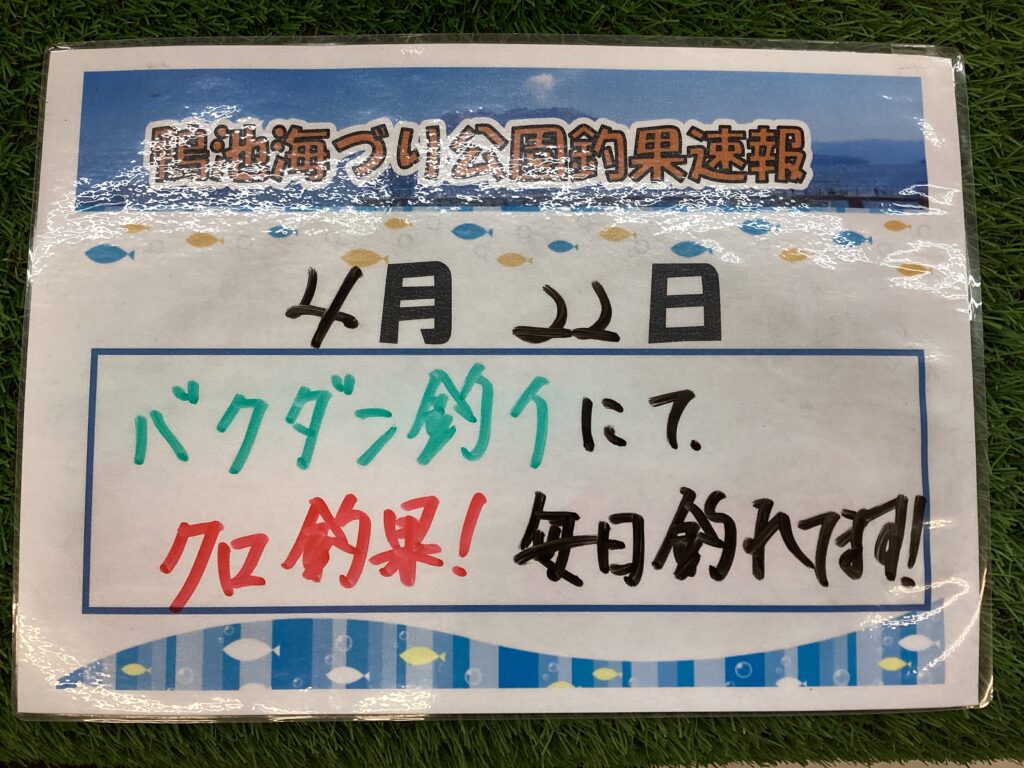 鴨池海づり公園釣果速報
4月 22日
バクダン釣イにて
クロ釣果! 毎日釣れてます!!